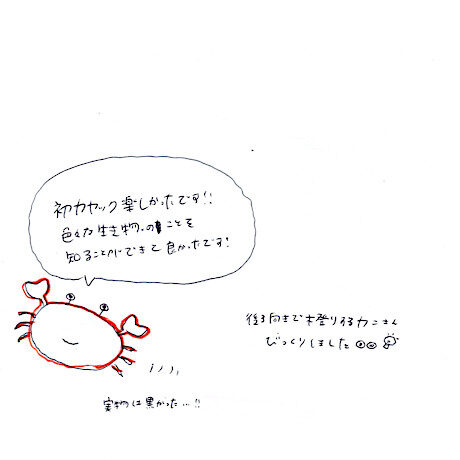 初カヤック楽しかったです!!
色々な生き物のことを
知ることができて良かったです!
後ろ向きで木登りするカニさん
びっくりしました
実物は黒かった…!!